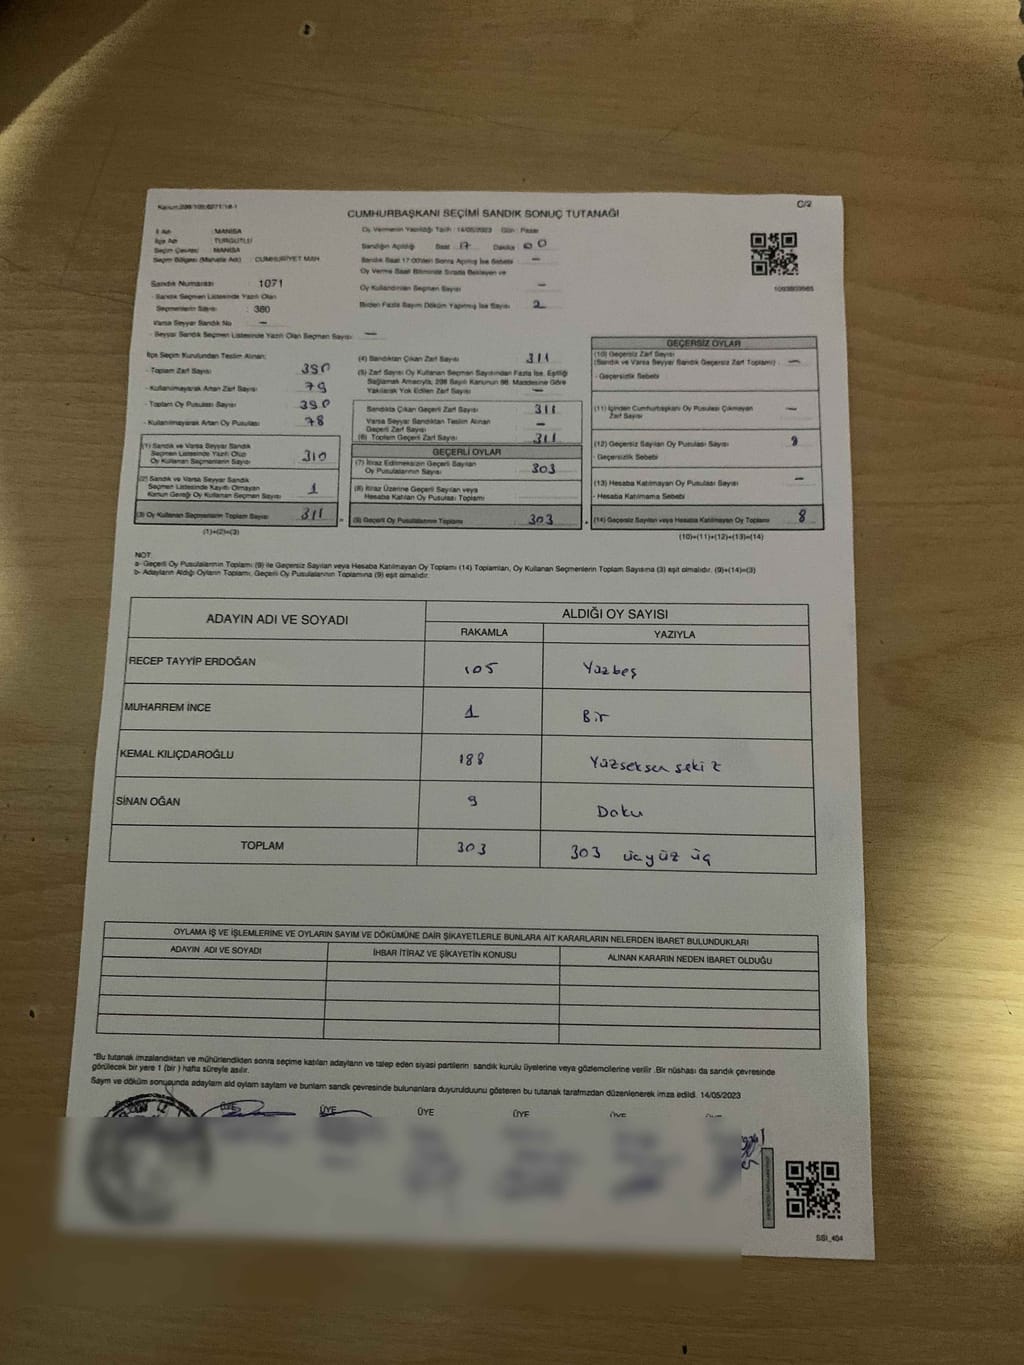 Kanun:298/105;6271/18-1
C/2
CUMHURBAŞKANI SEÇİMİ SANDIK SONUÇ TUTANAĞI
İl Adı : MANİSA
İlçe Adı : TURGUTLU
Seçim Çevresi : MANİSA
Seçim Bölgesi (Mahalle Adı) : CUMHURİYET MAH
Sandık Numarası 1071
- Sandık Seçmen Listesinde Yazılı Olan
Seçmenlerin Sayısı : 380
Varsa Seyyar Sandık No —
- Seyyar Sandık Seçmen Listesinde Yazılı Olan Seçmen Sayısı —
Oy Vermenin Yapıldığı Tarih : 14/05/2023 Gün : Pazar
Sandığın Açıldığı Saat 17 Dakika 00
Sandık Saat 17:00'den Sonra Açılmış İse Sebebi : —
Oy Verme Saati Bitiminde Sırada Bekleyen ve
Oy Kullandırılan Seçmen Sayısı —
Birden Fazla Sayım Döküm Yapılmış İse Sayısı 2
İlçe Seçim Kurulundan Teslim Alınan:
- Toplam Zarf Sayısı 390
- Kullanılmayarak Artan Zarf Sayısı 79
- Toplam Oy Pusulası Sayısı 390
- Kullanılmayarak Artan Oy Pusulası 78
(1) Sandık ve Varsa Seyyar Sandık
Seçmen Listesinde Yazılı Olup
Oy Kullanan Seçmenlerin Sayısı 310
(2) Sandık ve Varsa Seyyar Sandık
Seçmen Listesinde Kayıtlı Olmayan
Kanun Gereği Oy Kullanan Seçmen Sayısı 1
(3) Oy Kullanan Seçmenlerin Toplam Sayısı 311
(1)+(2)=(3)
(4) Sandıktan Çıkan Zarf Sayısı 311
(5) Zarf Sayısı Oy Kullanan Seçmen Sayısından Fazla İse, Eşitliği
Sağlamak Amacıyla, 298 Sayılı Kanunun 98. Maddesine Göre
Yakılarak Yok Edilen Zarf Sayısı —
Sandıkta Çıkan Geçerli Zarf Sayısı 311
Varsa Seyyar Sandıktan Teslim Alınan
Geçerli Zarf Sayısı —
(6) Toplam Geçerli Zarf Sayısı 311
GEÇERLİ OYLAR
(7) İtiraz Edilmeksizin Geçerli Sayılan
Oy Pusulalarının Sayısı 303
(8) İtiraz Üzerine Geçerli Sayılan veya
Hesaba Katılan Oy Pusulası Toplamı
(9) Geçerli Oy Pusulalarının Toplamı 303
GEÇERSİZ OYLAR
(10) Geçersiz Zarf Sayısı
(Sandık ve Varsa Seyyar Sandık Geçersiz Zarf Toplamı) —
- Geçersizlik Sebebi
(11) İçinden Cumhurbaşkanı Oy Pusulası Çıkmayan
Zarf Sayısı —
(12) Geçersiz Sayılan Oy Pusulası Sayısı
- Geçersizlik Sebebi
(13) Hesaba Katılmayan Oy Pusulası Sayısı —
- Hesaba Katılmama Sebebi
(14) Geçersiz Sayılan veya Hesaba Katılmayan Oy Toplamı 8
(10)+(11)+(12)+(13)=(14)
NOT:
a- Geçerli Oy Pusulalarının Toplamı (9) ile Geçersiz Sayılan veya Hesaba Katılmayan Oy Toplamı (14) Toplamları, Oy Kullanan Seçmenlerin Toplam Sayısına (3) eşit olmalıdır. (9)+(14)=(3)
b- Adayların Aldığı Oyların Toplamı, Geçerli Oy Pusulalarının Toplamına (9) eşit olmalıdır.
ADAYIN ADI VE SOYADI
ALDIĞI OY SAYISI
RAKAMLA YAZIYLA
RECEP TAYYİP ERDOĞAN 105 Yüzbeş
MUHARREM İNCE 1 Bir
KEMAL KILIÇDAROĞLU 188 Yüzseksen sekiz
SİNAN OĞAN 9 Doku
TOPLAM 303 303 üçyüz üç
OYLAMA İŞ VE İŞLEMLERİNE VE OYLARIN SAYIM VE DÖKÜMÜNE DAİR ŞİKAYETLERLE BUNLARA AİT KARARLARIN NELERDEN İBARET BULUNDUKLARI
ADAYIN ADI VE SOYADI İHBAR İTİRAZ VE ŞİKAYETİN KONUSU ALINAN KARARIN NEDEN İBARET OLDUĞU
*Bu tutanak imzalandıktan ve mühürlendikten sonra seçime katılan adayların ve talep eden siyasi partilerin sandık kurulu üyelerine veya gözlemcilerine verilir .Bir nüshası da sandık çevresinde
görülecek bir yere 1 (bir ) hafta süreyle asılır.
Sayım ve döküm sonuçunda adayların ald oylam saylam ve bunlam sandk çevresinde bulunanlara duyurulduunu gösteren bu tutanak tarafmzdan düzenlenerek imza edildi. 14/05/2023
ÜYE ÜYE ÜYE ÜYE ÜYE
SSI_404